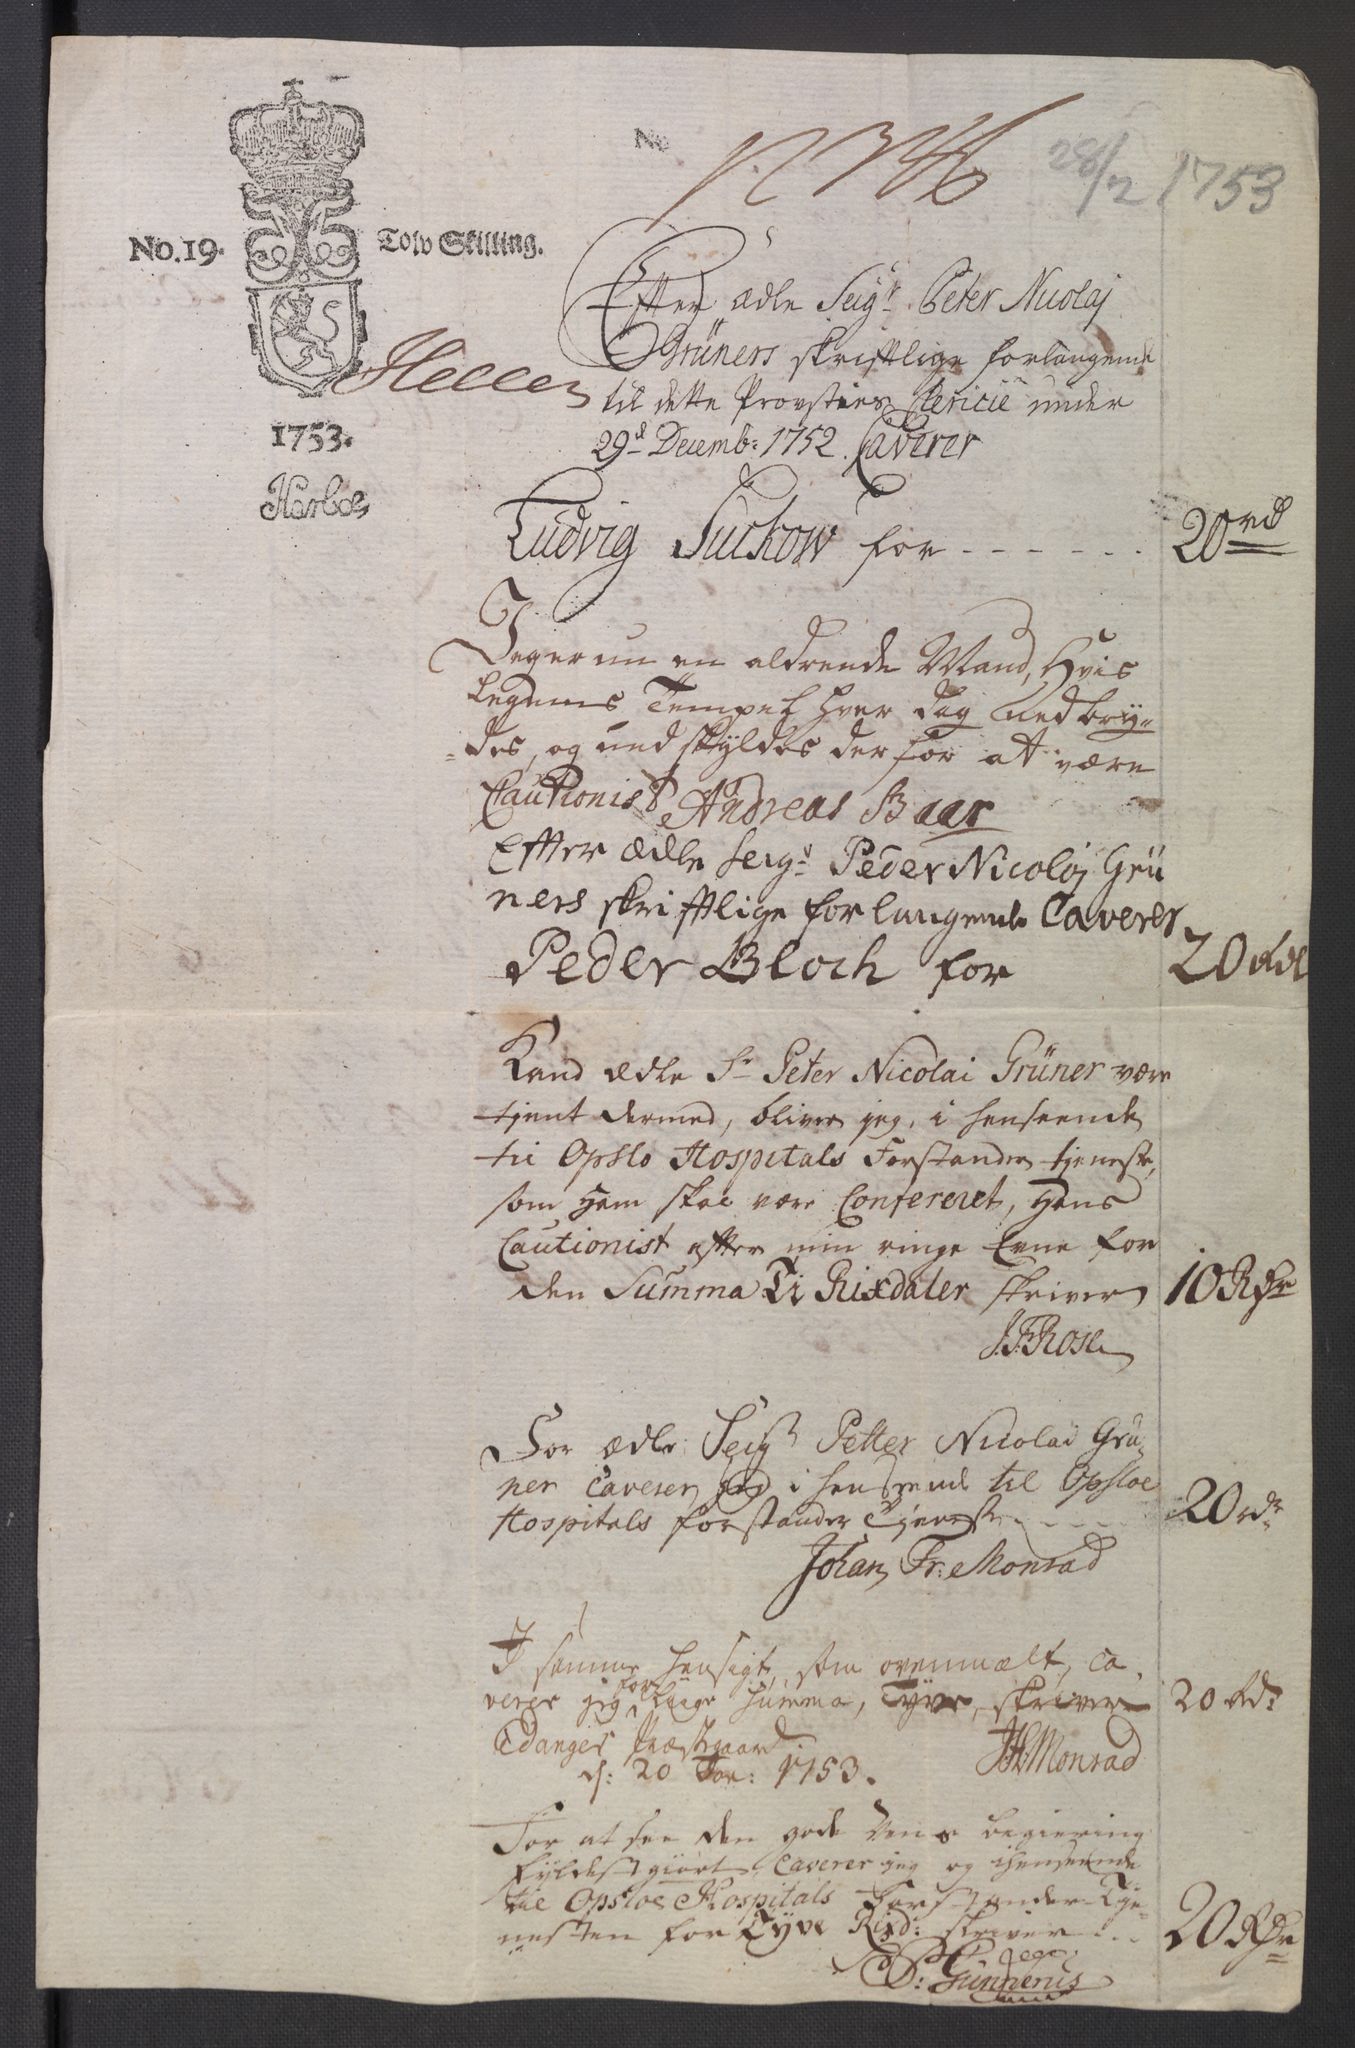 No
28/2 1753
No. 19.
Tolv Skilling.
1753.
Hellen
Harboe
Efter ædle Seigr Peter Nicolaj
Grüners skriftlige forlangende
til dette Provsties Clericie under
29d Decemb: 1752. Caverer
Ludvig Suckow for - - - - - - 20 rd
Jeg er nu en aldrende Mand, Hvis
Legems Tempel hver dag nedbry=
=des, og undskyldes derfor at være
Cautionist Andreas Baar
Efter ædle Seigr Peder Nicolaj Grü
ners skriftlige forlangende Caverer
Peder Bloch for 20 Rdl
Kand ædle Sr Peter Nicolai Grüner være
tjent dermed, bliver jeg, i henseende
til Opslo Hospitals Forstander tjeneste,
som Ham skal være Confereret, Hans
Cautionist efter min ringe Evne for
den Summa Ti Rixdaler skriver 10 Rdr
J. F. Rose
For ædle Seigr Petter Nicolai Grü-
ner Caverer jeg i henseende til Opsloe
Hospitals forstander Tjeneste - - - - 20 rdr
Johan Fr: Monrad
I samme hensigt, som ovenmælt, ca,
verer jeg for lige Summa, Tyve, skriver 20 Rd:
Edanger Præstgaard
d: 20 Jan: 1753.
Monrad
For at see den gode Vens begiering
fyldestgiort, Caverer jeg og i henseende
til Opsloe Hospitals Forstander-Tje-
nesten for Tyve Rixd: skriver - - - 20 Rdr
Gunnerus